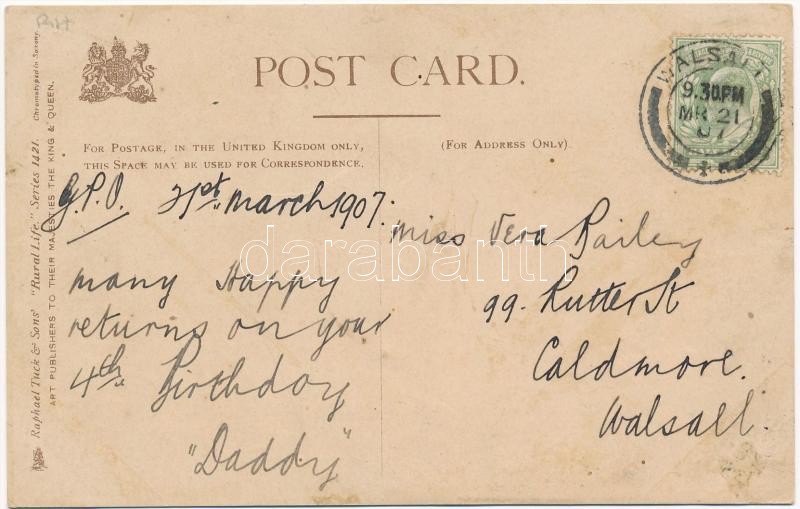 POST CARD.
FOR POSTAGE, IN THE UNITED KINGDOM ONLY,
THIS SPACE MAY BE USED FOR CORRESPONDENCE.
(FOR ADDRESS ONLY)
WALSALL
9.30PM
MR 21
07
G.P.O. 21st March 1907.
Many Happy
returns on your
4th Birthday
"Daddy"
Miss Vera Bailey
99. Rutter St
Caldmore.
Walsall.
Raphael Tuck & Sons' "Rural Life." Series 1421. Chromotyped in Saxony.
ART PUBLISHERS TO THEIR MAJESTIES THE KING & QUEEN.
darabanth